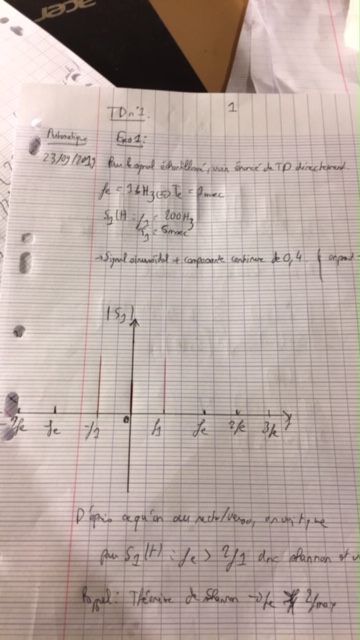 acer
TD n°1.
1
Automatique
Exo 1:
23/09/2019
Pour le signal échantillonné, voir énoncé de TD directement
fe = 1kHz <=> Te = 1msec
S1(t) : f1 = 200Hz
T1 = 5msec
→ Signal sinusoïdal + composante continue de 0,4
|S1|
-2fe -fe -f1 0 f1 fe 2fe 3fe f
D'après ce qu'on a vu recto/verso, on voit que
pour S1(t) : fe > 2f1 donc shannon est
Rappel: Théorème de Shannon → fe 2fmax